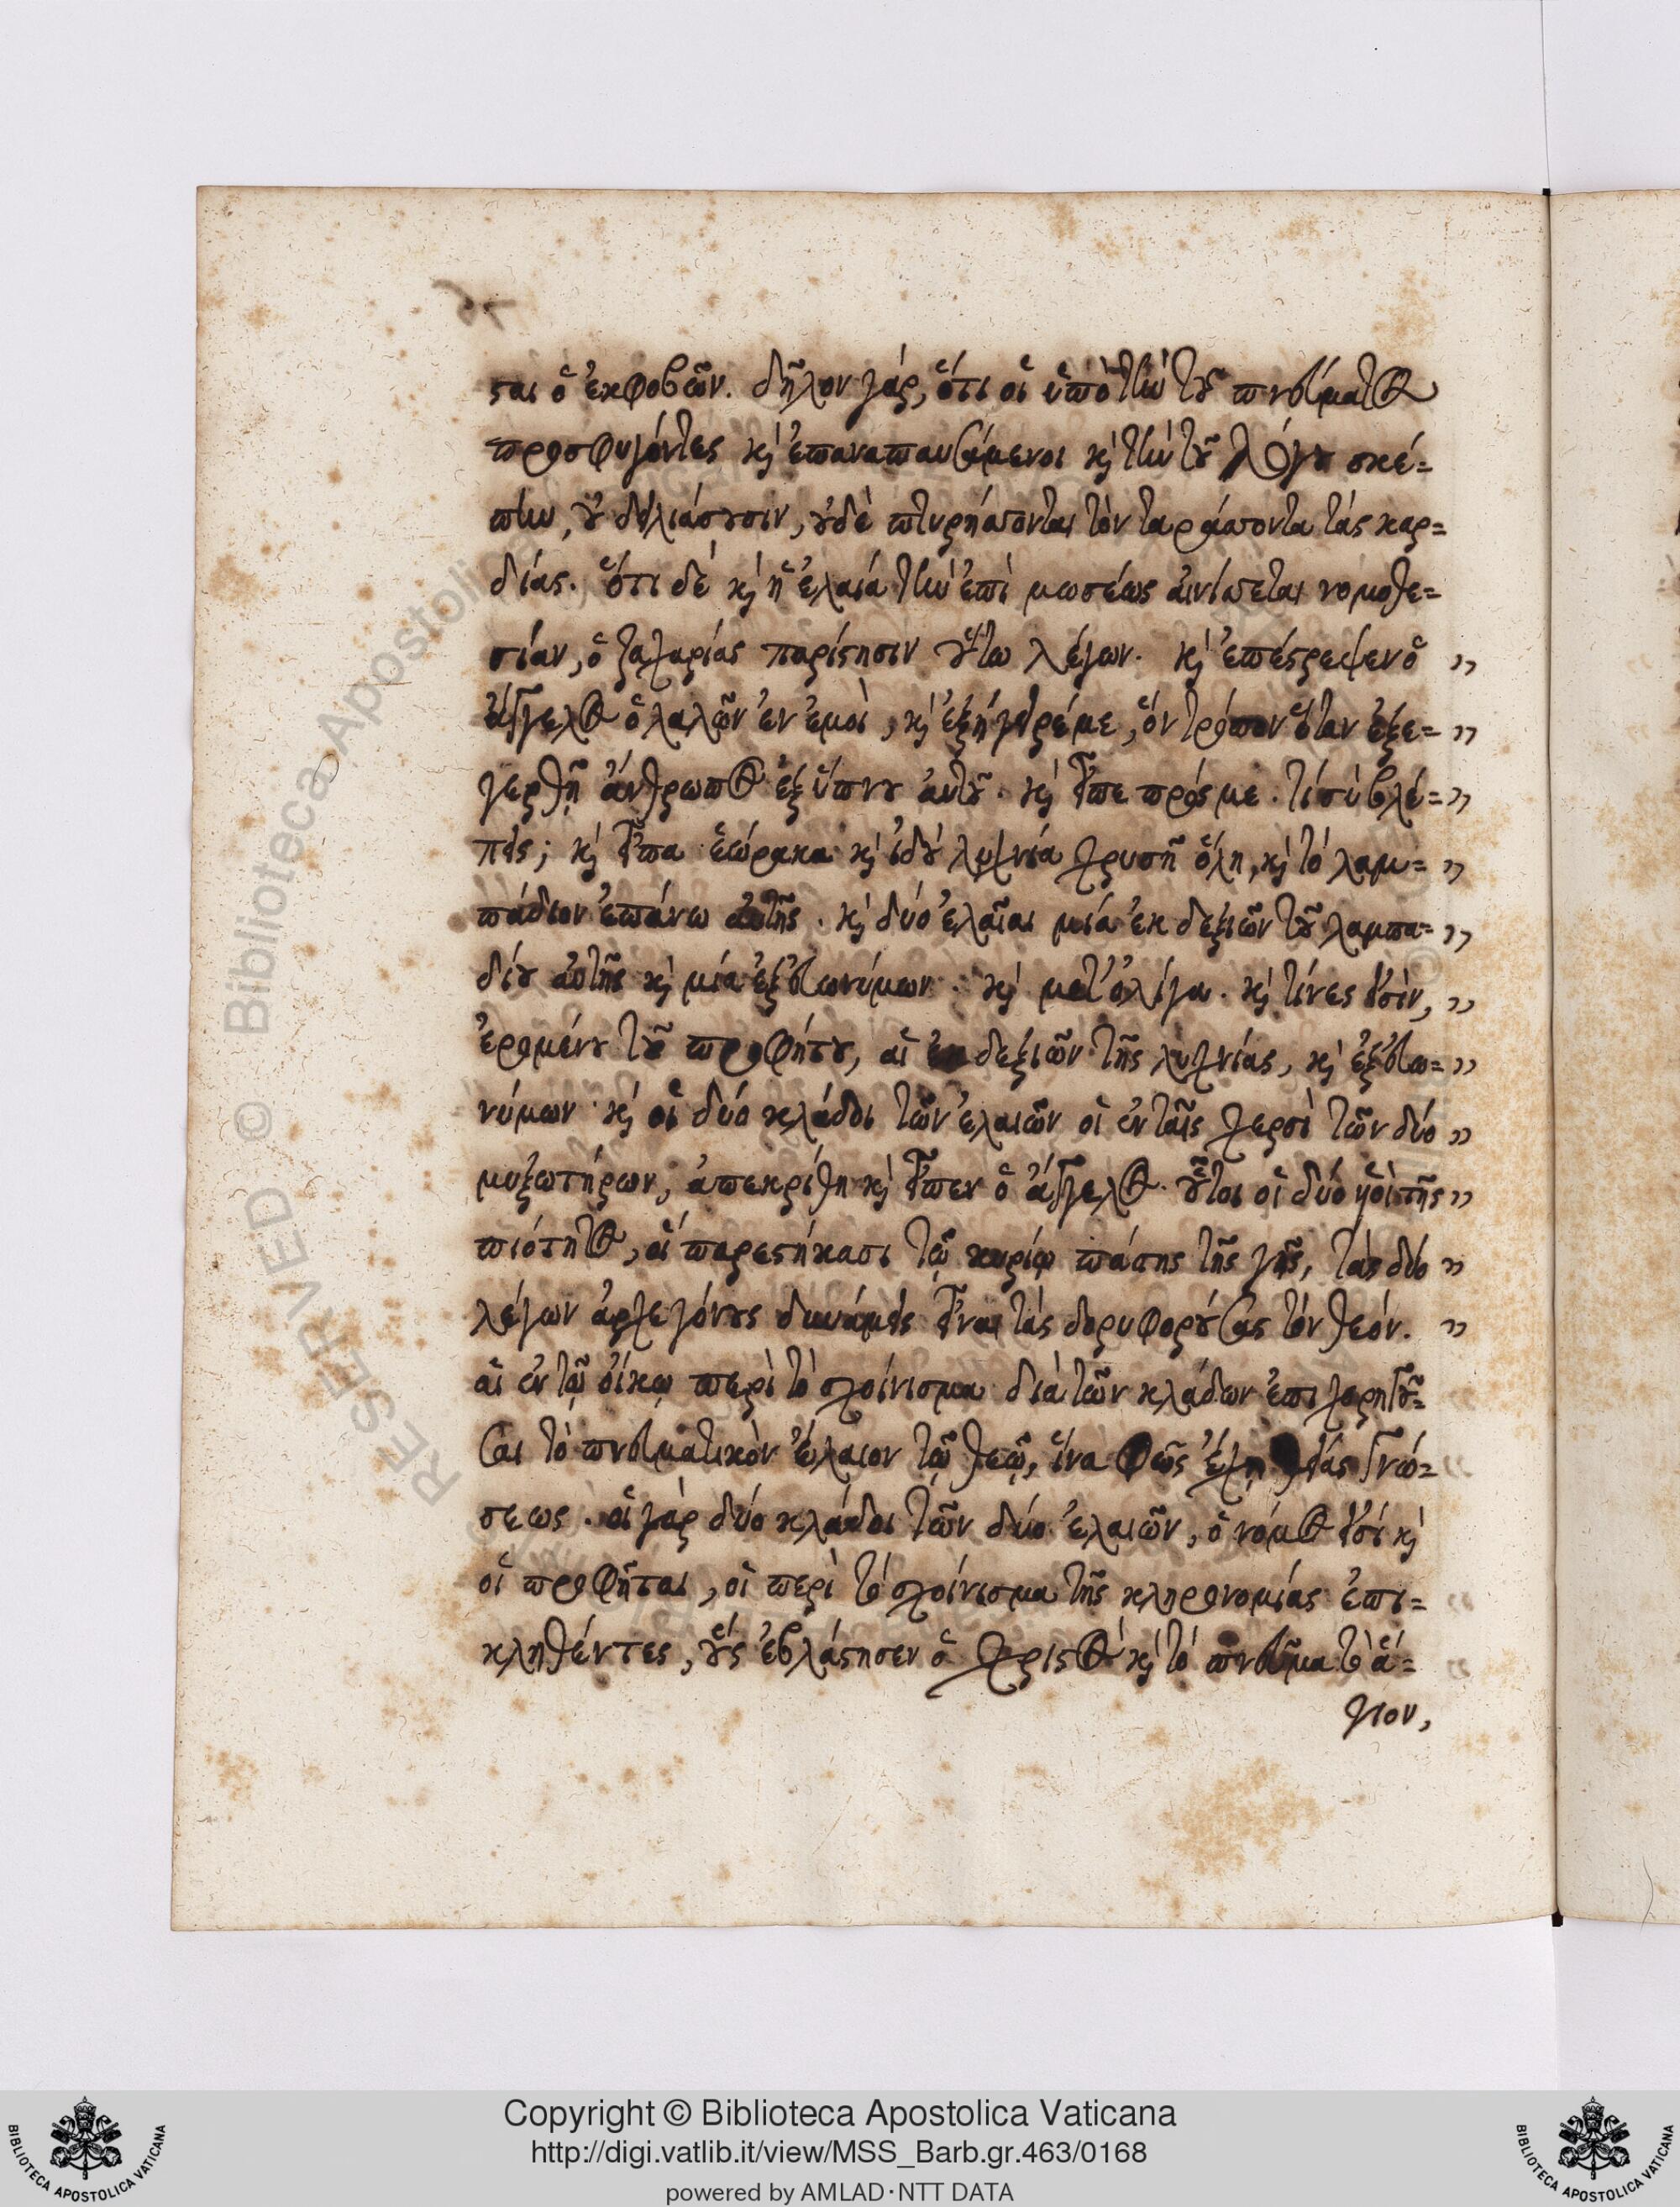 σαι ὁ ἐκφοβῶν. δῆλον γάρ, ὅτι οἱ ὑπὸ τὴν τοῦ πνεύματος
προσφυγόντες καὶ ἐπαναπαυσάμενοι καὶ τὴν τοῦ λόγου σκέ=
πην, οὐ δειλιάσουσιν, οὐδὲ πτυρήσονται τὸν ταράσσοντα τὰς καρ=
δίας. ὅτι δὲ καὶ ἡ ἐλαία τὴν ἐπὶ μωσέως αἰνίττεται νομοθε=
σίαν, ὁ ζαχαρίας παρίστησιν οὕτω λέγων. καὶ ἐπέστρεψεν ὁ "
ἄγγελος ὁ λαλῶν ἐν ἐμοὶ, καὶ ἐξήγειρέ με, ὃν τρόπον ὅταν ἐξε= "
γερθῇ ἄνθρωπος ἐξ ὕπνου αὐτοῦ. καὶ εἶπε πρός με. τί σὺ βλέ= "
πεις; καὶ εἶπα ἑώρακα καὶ ἰδοὺ λυχνία χρυσῆ ὅλη, καὶ τὸ λαμ= "
πάδιον ἐπάνω αὐτῆς. καὶ δύο ἐλαῖαι μία ἐκ δεξιῶν τοῦ λαμπα= "
δίου αὐτῆς καὶ μία ἐξ εὐωνύμων. καὶ μετ' ὀλίγα. καὶ τίνες εἰσὶν, "
ἐρομένου τοῦ προφήτου, αἱ ἐκ δεξιῶν τῆς λυχνίας, καὶ ἐξ εὐω= "
νύμων καὶ οἱ δύο κλάδοι τῶν ἐλαιῶν οἱ ἐν ταῖς χερσὶ τῶν δύο "
μυξωτήρων, ἀπεκρίθη καὶ εἶπεν ὁ ἄγγελος. οὗτοι οἱ δύο υἱοὶ τῆς "
πιότητος, οἳ παρεστήκασι τῷ κυρίῳ πάσης τῆς γῆς, τὰς δύο "
λέγων ἀρχεγόνους δυνάμεις εἶναι τὰς δορυφορούσας τὸν θεόν. "
αἳ ἐν τῷ οἴκῳ περὶ τὸ σχοίνισμα διὰ τῶν κλάδων ἐπιχορηγοῦ=
σαι τὸ πνευματικὸν ἔλαιον τῷ θεῷ, ἵνα φῶς ἔχῃ θείας γνώ=
σεως. οἱ γὰρ δύο κλάδοι τῶν δύο ἐλαιῶν, ὁ νόμος εἰσὶ καὶ
οἱ προφῆται, οἱ περὶ τὸ σχοίνισμα τῆς κληρονομίας ἐπι=
κληθέντες, οὓς ἐβλάστησεν ὁ χριστὸς καὶ τὸ πνεῦμα τὸ ἅ=
γιον,
Copyright © Biblioteca Apostolica Vaticana
http://digi.vatlib.it/view/MSS_Barb.gr.463/0168
powered by AMLAD·NTT DATA